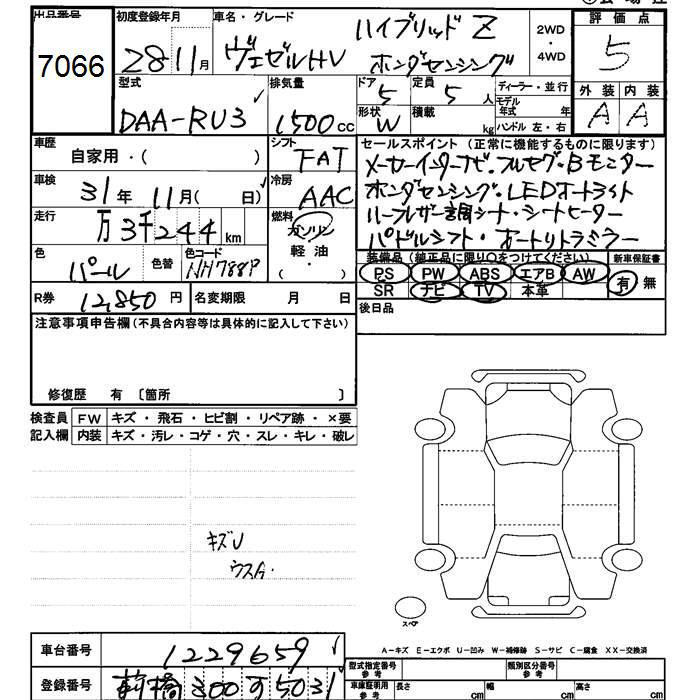 出品番号 初度登録年月 車名・グレード ハイブリッド Z 2WD・4WD 評価点
7066 28 11月 ヴェゼルHV ホンダセンシング 5
型式 排気量 ドア 5 定員 5人 ディーラー・並行 外装 内装
DAA-RU3 1500cc 形状 W 積載 kg モデル年式 年 ハンドル 左・右 A A
車歴 自家用・( ) シフト FAT セールスポイント(正常に機能するものに限ります)
メーカーインターナビ・フルセグ・Bモニター
車検 31年 11月( 日) 冷房 AAC ホンダセンシング・LEDオートライト
走行 万3千244km 燃料 ガソリン 軽油 ・( ) ハーフレザー調シート・シートヒーター
パドルシフト・オートリトラミラー
色 パール 色替 色コード NH788P 装備品(純正品に限り〇をつけてください) 新車保証書
PS PW ABS エアB AW 有 無
R券 12,850円 名変期限 月 日 SR ナビ TV 本革
注意事項申告欄(不具合内容等は具体的に記入して下さい) 後日品
修復歴 有 〔箇所 〕
検査員 FW キズ・飛石・ヒビ割・リペア跡・×要
記入欄 内装 キズ・汚レ・コゲ・穴・スレ・キレ・破レ
キズU
ウスA・
スペア
A－キズ E－エクボ U－凹み W－補修跡 S－サビ C－腐食 XX－交換済
車台番号 1229659 型式指定番号 参考 類別区分番号 参考
登録番号 前橋 300 す 5031 車庫証明用 参考 長さ cm 幅 cm 高さ cm